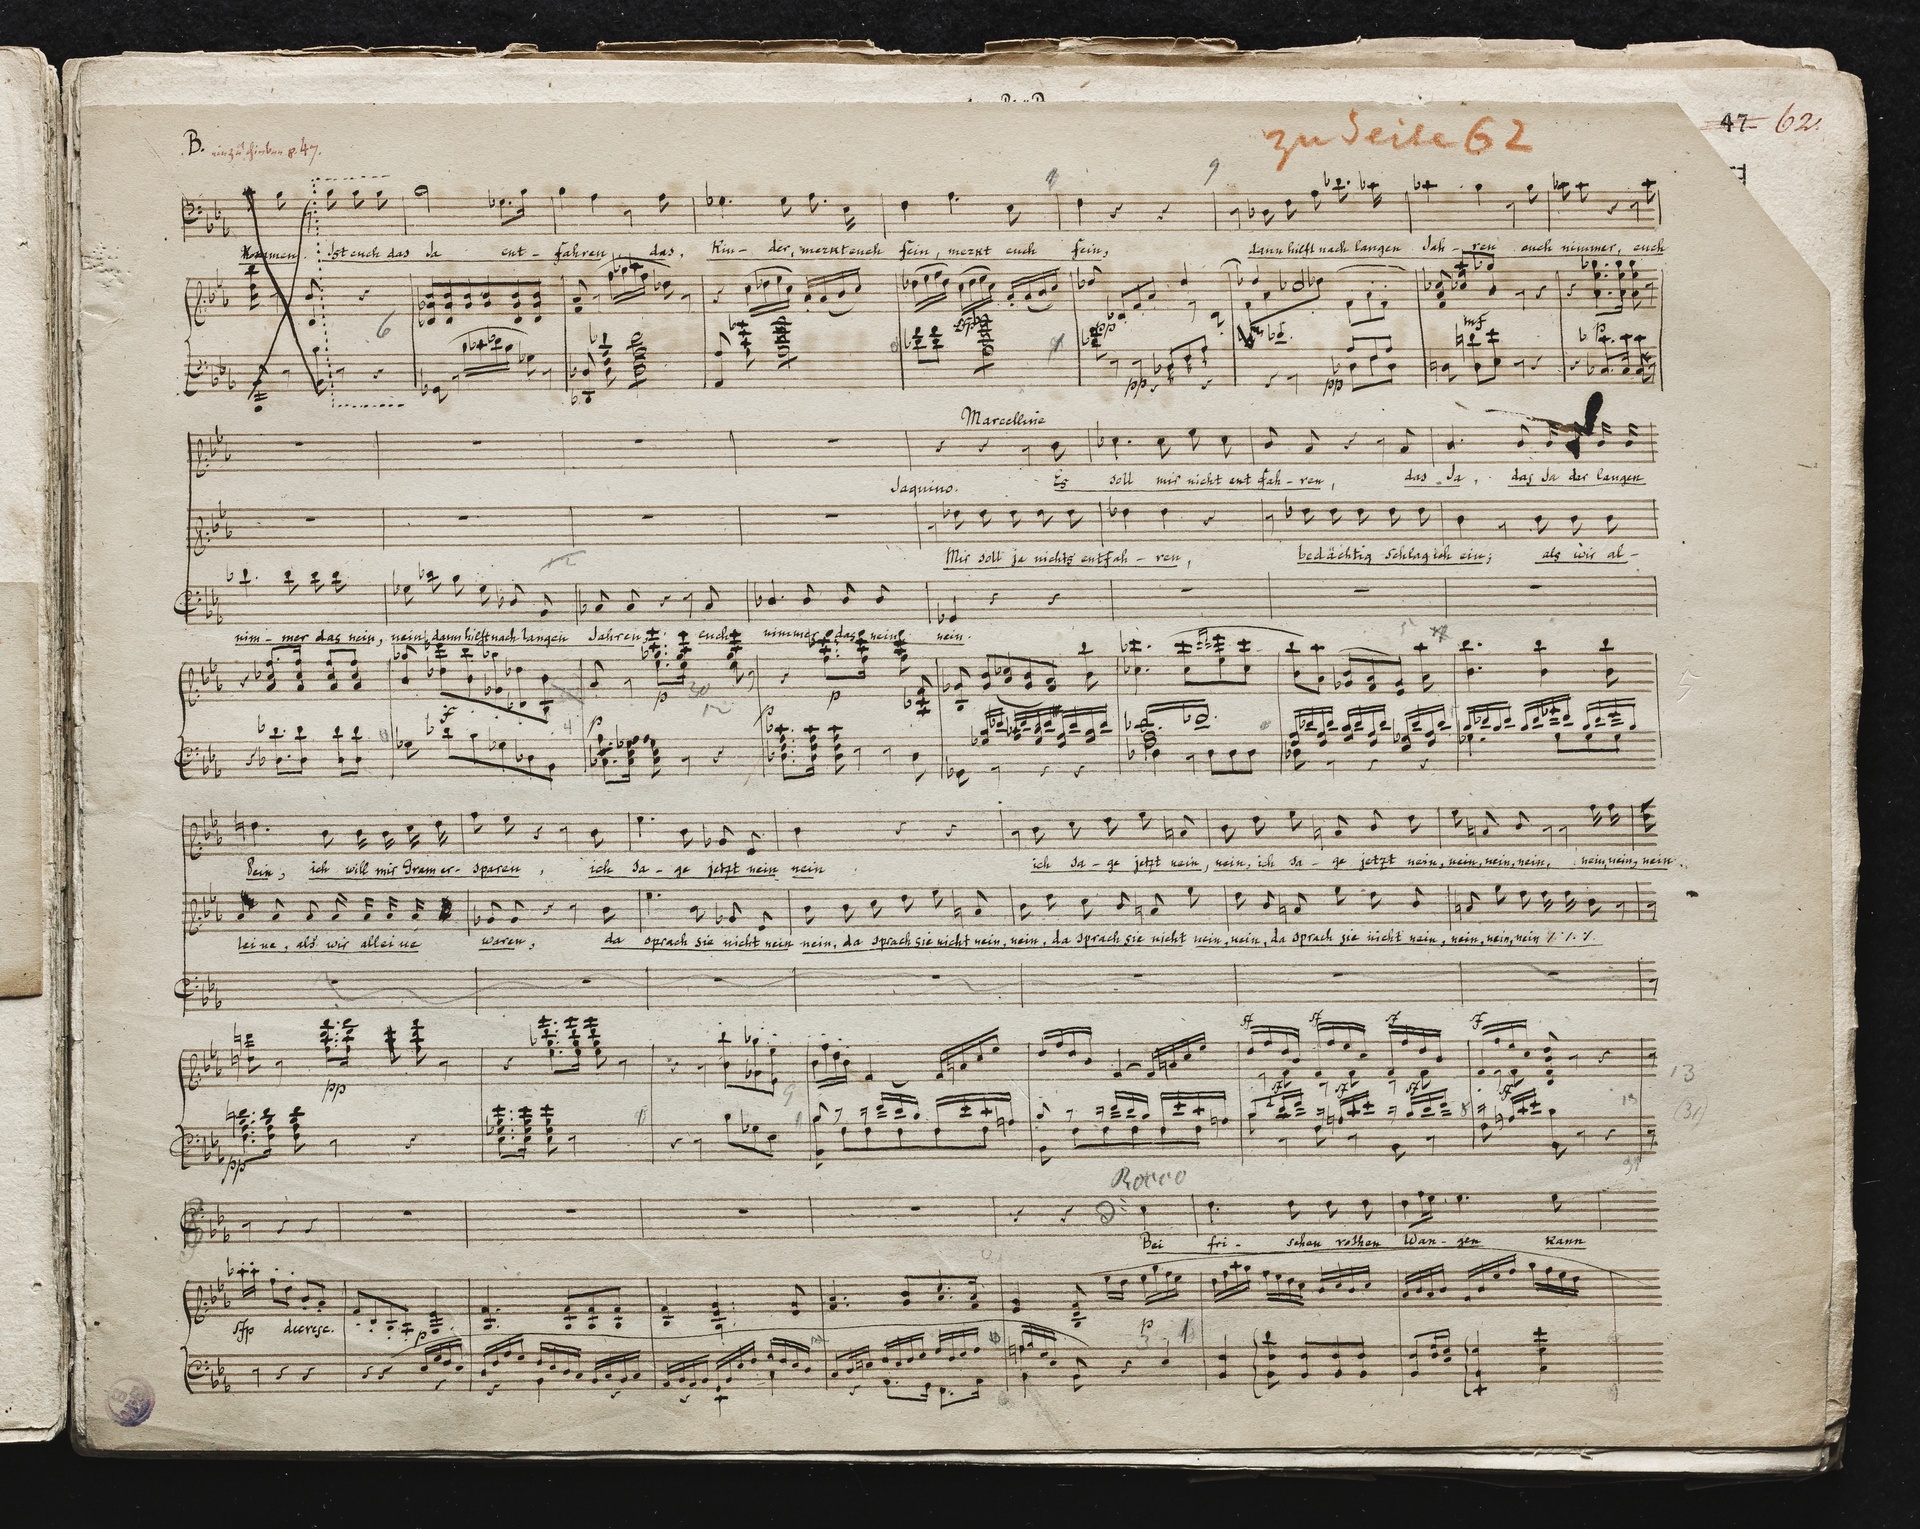 zu Seite 62
47 62.
B. einzuschieben p. 47.
9
kommen. Ist euch das Ja ent - fahren, das, Kin - der, merkt euch fein, merkt euch fein, dann hilft nach langen Jah - ren euch nimmer, euch
6
sfp pp mf p.
pp pp
Marcelline
Es soll mir nicht ent fah - ren, das Ja, das Ja der langen
Jaquino.
Mir soll ja nichts entfah - ren, bedächtig schlag ich ein; als wir al -
nim - mer das nein, nein, dann hilft nach langen Jahren, euch nimmer das nein nein.
f p p
4
p p
Pein, ich will mir Gram er - sparen, ich sa - ge jetzt nein nein ich sa - ge jetzt nein, nein, ich sa - ge jetzt nein, nein, nein, nein, nein, nein, nein
leine, als wir alleine waren, da sprach sie nicht nein nein, da sprach sie nicht nein, nein, da sprach sie nicht nein, nein, da sprach sie nicht nein, nein, nein, nein
pp sf sf sf sf
13
(31)
sf sf sf sf
pp
Rocco
Bei fri - schen rothen Wan - gen kann
sfp decresc. p p